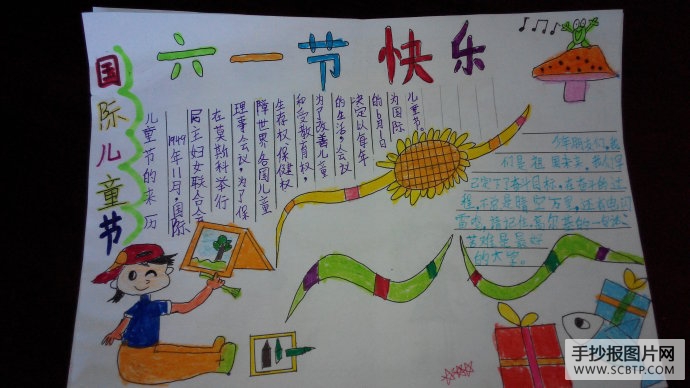 六一节快乐
国际儿童节
儿童节的来历
1949年11月,国际
民主妇女联合会
在莫斯科举行
理事会议,为了保
障世界各国儿童
生存权、保健权
和受教育权,
为了改善儿童
的生活,会议
决定以每年
的6月1日
为国际
儿童节。
少年朋友们,我
们是祖国未来,我们早
已定下了奋斗目标,在奋斗的过
程,是晴空万里,还有电闪
雷鸣,请记住,高尔基的一句话
苦难是最好
的大学。
手抄报图片网
WWW.SCBTP.COM